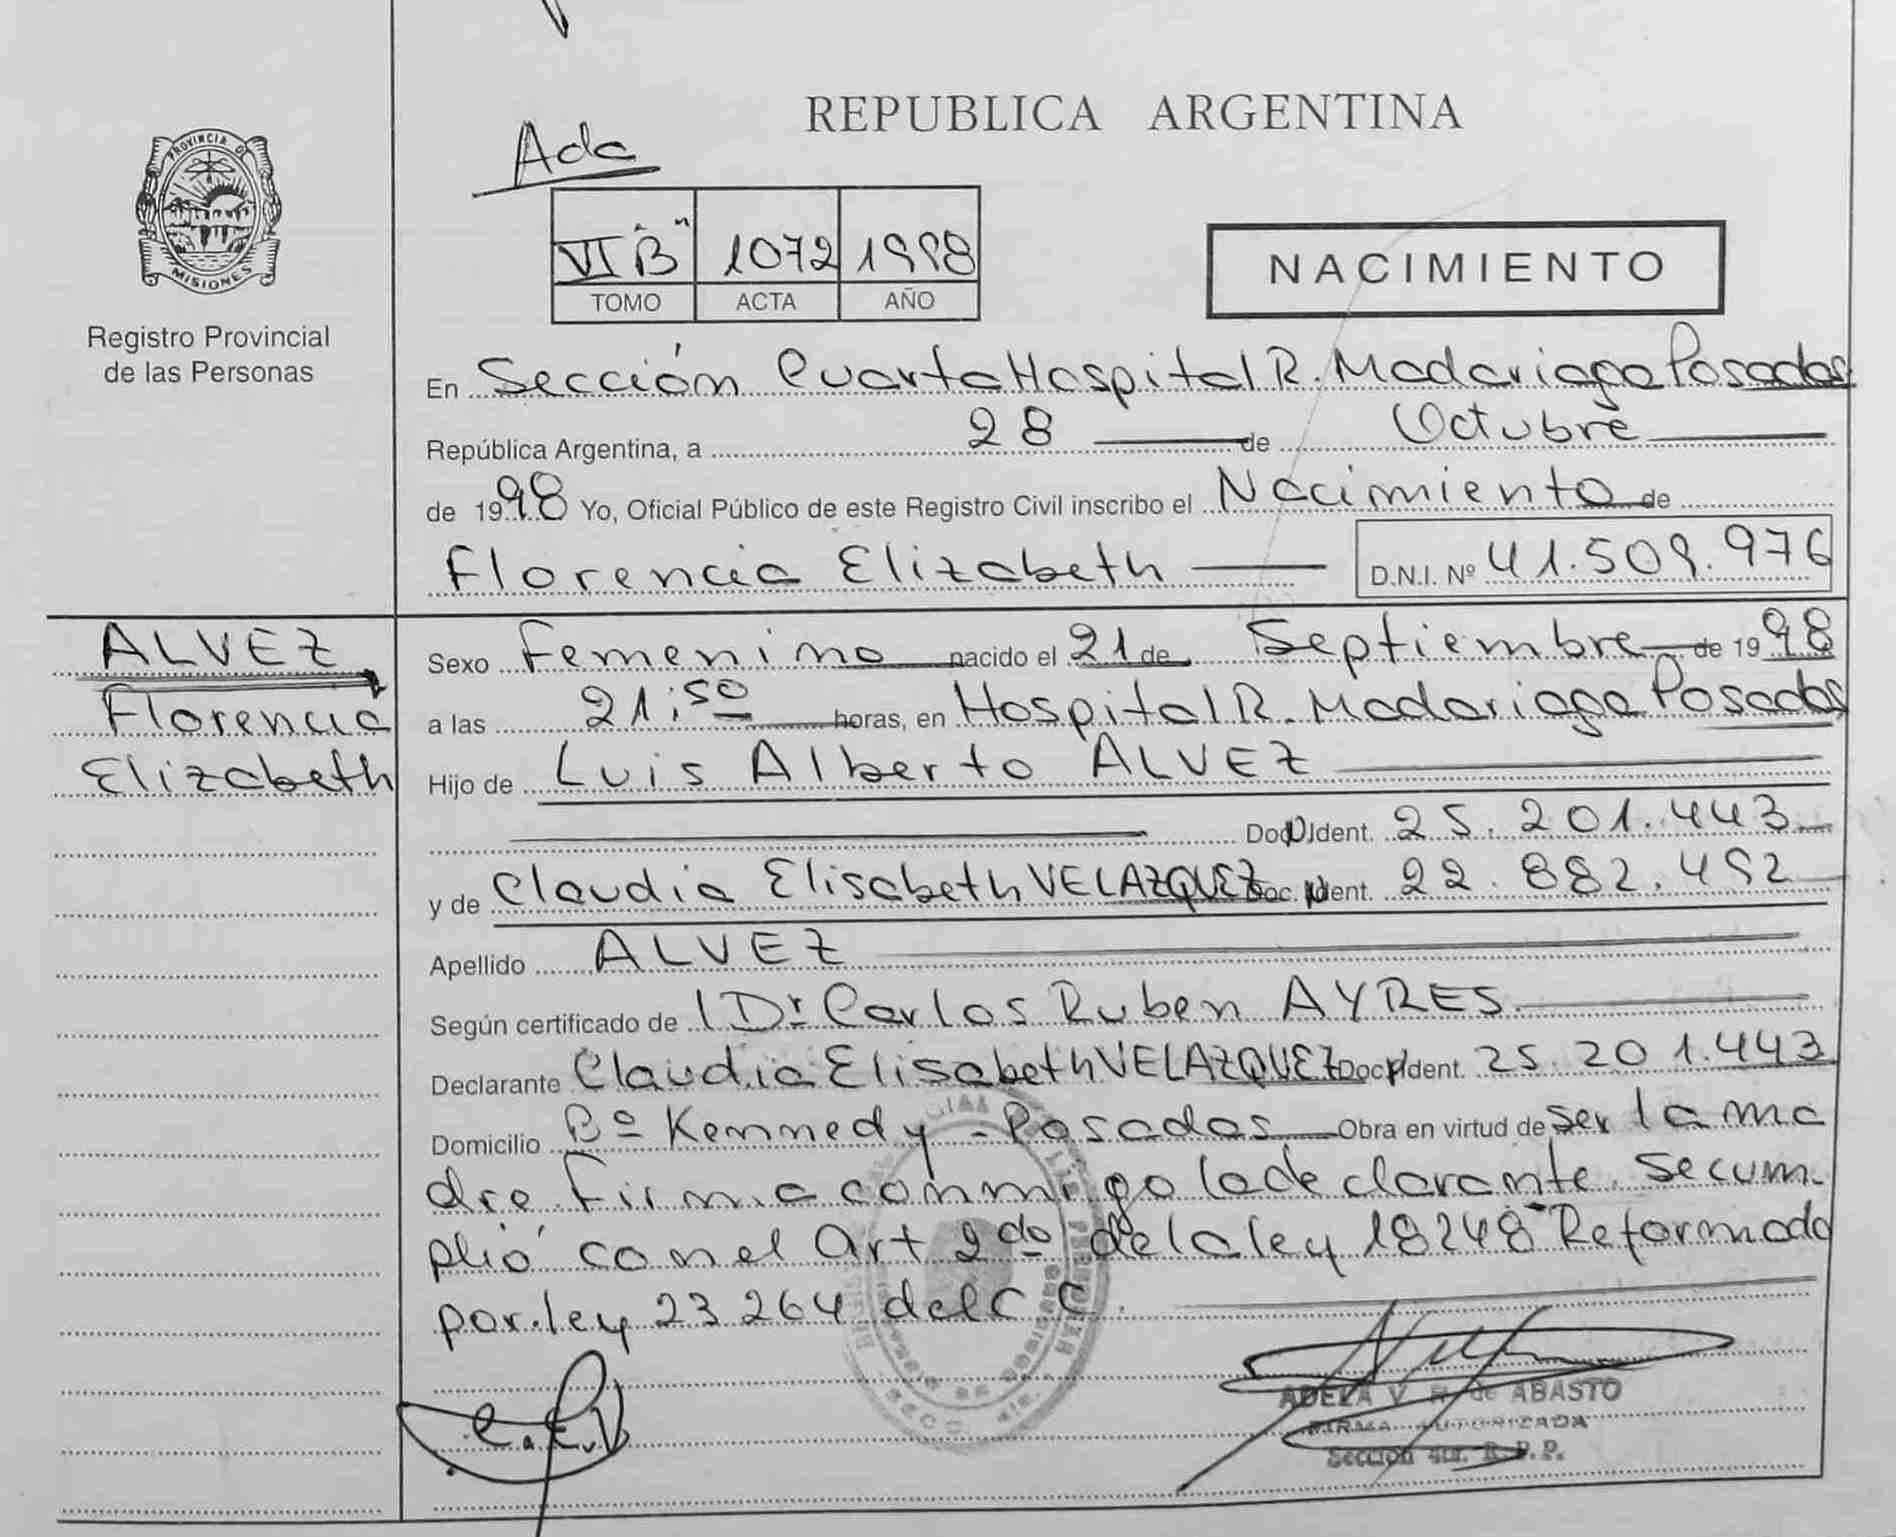 PROVINCIA D
MISIONES
Registro Provincial
de las Personas
REPUBLICA ARGENTINA
Ada
VI "B" 1072 1998
TOMO ACTA AÑO
NACIMIENTO
En Sección Cuarta Hospital R. Madariaga Posadas
República Argentina, a 28 de Octubre
de 1998 Yo, Oficial Público de este Registro Civil inscribo el Nacimiento de
Florencia Elizabeth D.N.I. Nº 41.509.976
ALVEZ
Florencia
Elizabeth
Sexo Femenino nacido el 21 de Septiembre de 1998
a las 21:50 horas, en Hospital R. Madariaga Posadas
Hijo de Luis Alberto ALVEZ
Doc. Ident. 25.201.443
y de Claudia Elisabeth VELAZQUEZ Doc. Ident. 22.882.452
Apellido ALVEZ
Según certificado de l Dr Carlos Ruben AYRES
Declarante Claudia Elisabeth VELAZQUEZ Doc. Ident. 25.201.443
Domicilio Bº Kennedy - Posadas Obra en virtud de ser la ma
dre. Firma conmigo la declarante. Se cum-
plió con el Art 2do de la ley 18248 Reformada
por ley 23264 del C C.
C.E.V
ADELA V de ABASTO
FIRMA AUTORIZADA
Sección 4ta. R.P.P.